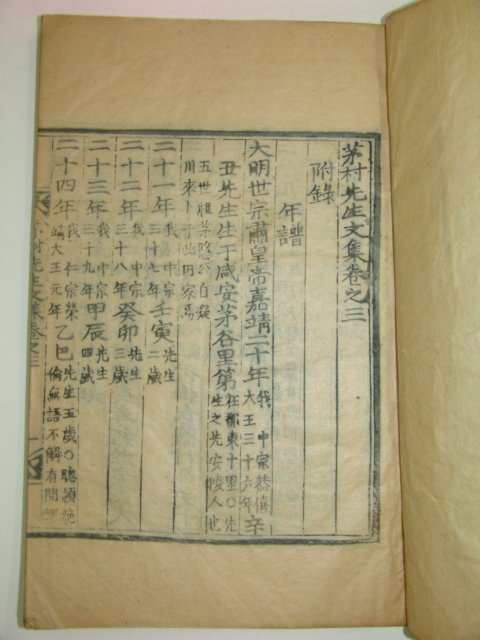 茅村先生文集卷之三
附錄
年譜
大明世宗肅皇帝嘉靖二十年我中宗恭僖大王三十六年辛
丑先生生于咸安茅谷里第在郡東十里○先生之先安陵人也
五世祖茅隱公自疑
川來卜于此因家焉
二十一年我中宗三十七年壬寅先生二歲
二十二年我中宗三十八年癸卯先生三歲
二十三年我中宗三十九年甲辰先生四歲
二十四年我仁宗榮靖大王元年乙巳先生五歲○聰穎絶倫無語不解有問
茅村先生文集卷之三
一